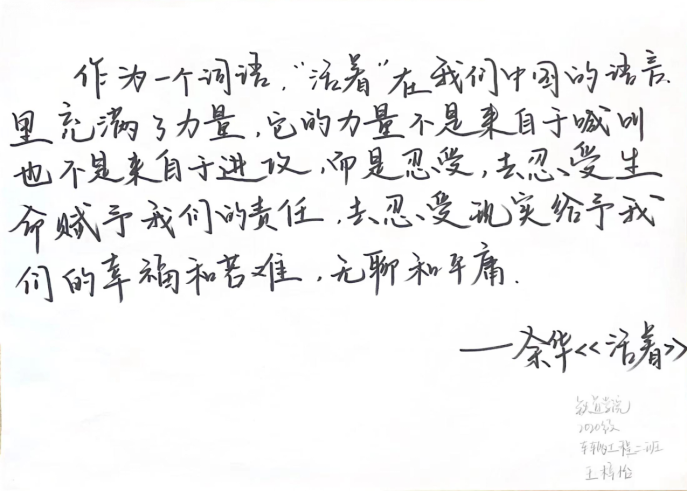 作为一个词语，“活着”在我们中国的语言
里充满了力量，它的力量不是来自于喊叫
也不是来自于进攻，而是忍受，去忍受生
命赋予我们的责任，去忍受现实给予我
们的幸福和苦难，无聊和平庸．
——余华<<活着>>
铁道学院
2020级
车辆工程二班
王梓怡